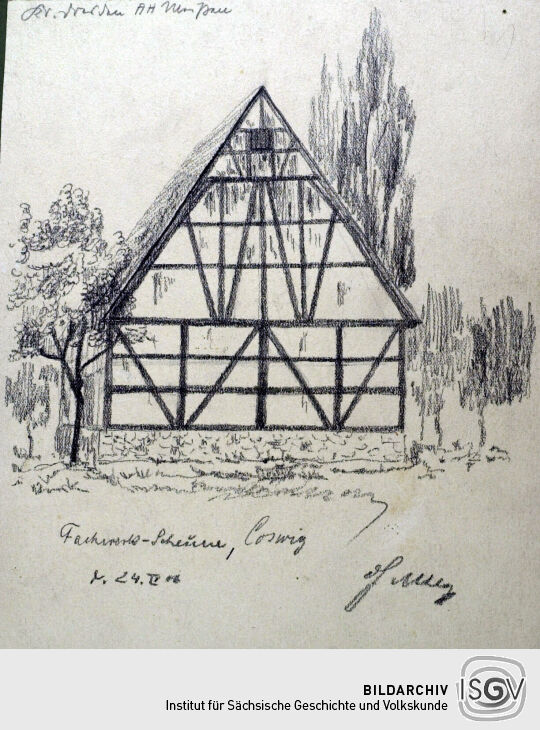 Dresden AH Meißen
Fachwerk-Scheune, Coswig
d. 24. 06
BILDARCHIV
Institut für Sächsische Geschichte und Volkskunde
ISGV